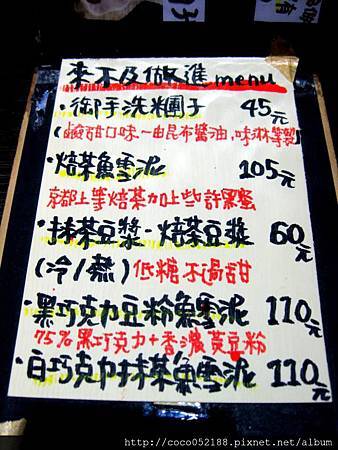 來不及做進menu
·御手洗糰子 45元
(鹹甜口味-由昆布醬油,味淋等製)
·焙茶魚雪泥 105元
京都上等焙茶加上些許黑蜜
·抹茶豆漿-焙茶豆漿 60元
(冷/熱)低糖 不過甜
·黑巧克力豆粉魚雪泥 110元
75%黑巧克力+香濃黃豆粉
·白巧克力抹茶魚雪泥 110元
http://coco052188.pixnet.net/album